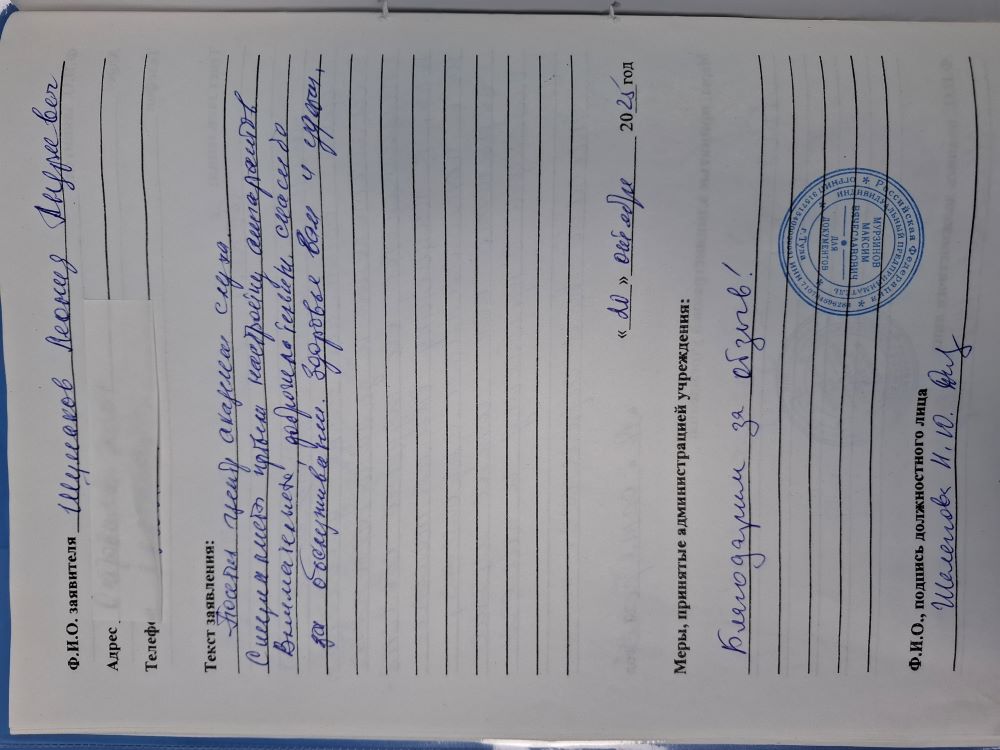 Ф.И.О. заявителя Шумаков Леонид Андреевич
Адрес
Телефо
Текст заявления:
Посетил центр академия слуха
Специалист провел настройку аппаратов
Внимательный доброжелательный спасибо
за обслуживание. Здоровье Вам и удачи.
«20» октября 2025 год
Меры, принятые администрацией учреждения:
Благодарим за отзыв!
Российская Федерация
ИНДИВИДУАЛЬНЫЙ ПРЕДПРИНИМАТЕЛЬ
МУРЗИНОВ
МАКСИМ
ВЯЧЕСЛАВОВИЧ
ДЛЯ
ДОКУМЕНТОВ
г. Тула
Ф.И.О., подпись должностного лица
Шелепова И.Ю.